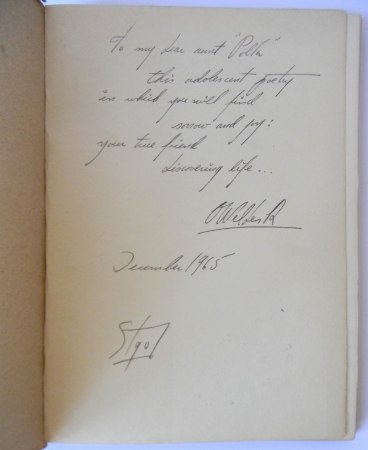 To my dear aunt "Polla"
this adolescent poetry
in which you will find
sorrow and joy:
your true friend
discovering life...
December 1965
Stgo